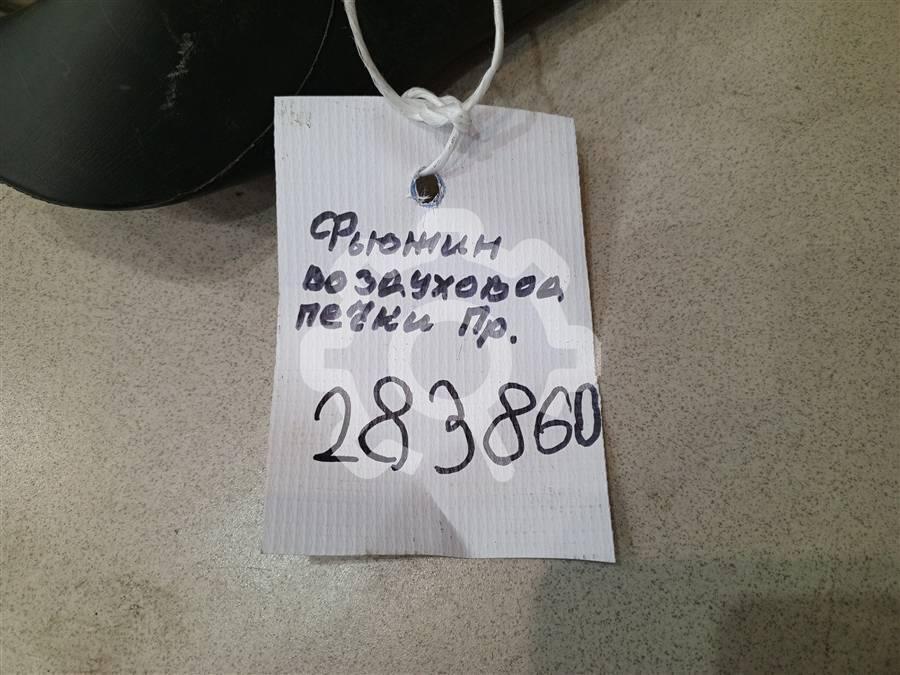 Фьюжин
воздуховод
печки Пр.
283860